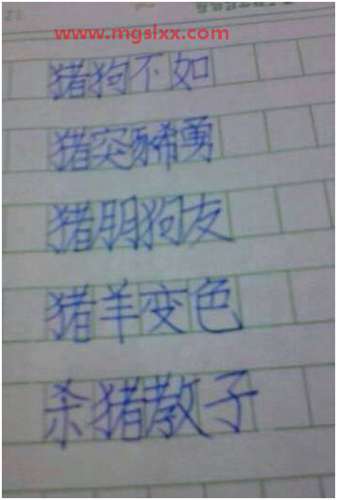 www.mgslxx.com
猪狗不如
猪突豨勇
猪朋狗友
猪羊变色
杀猪教子